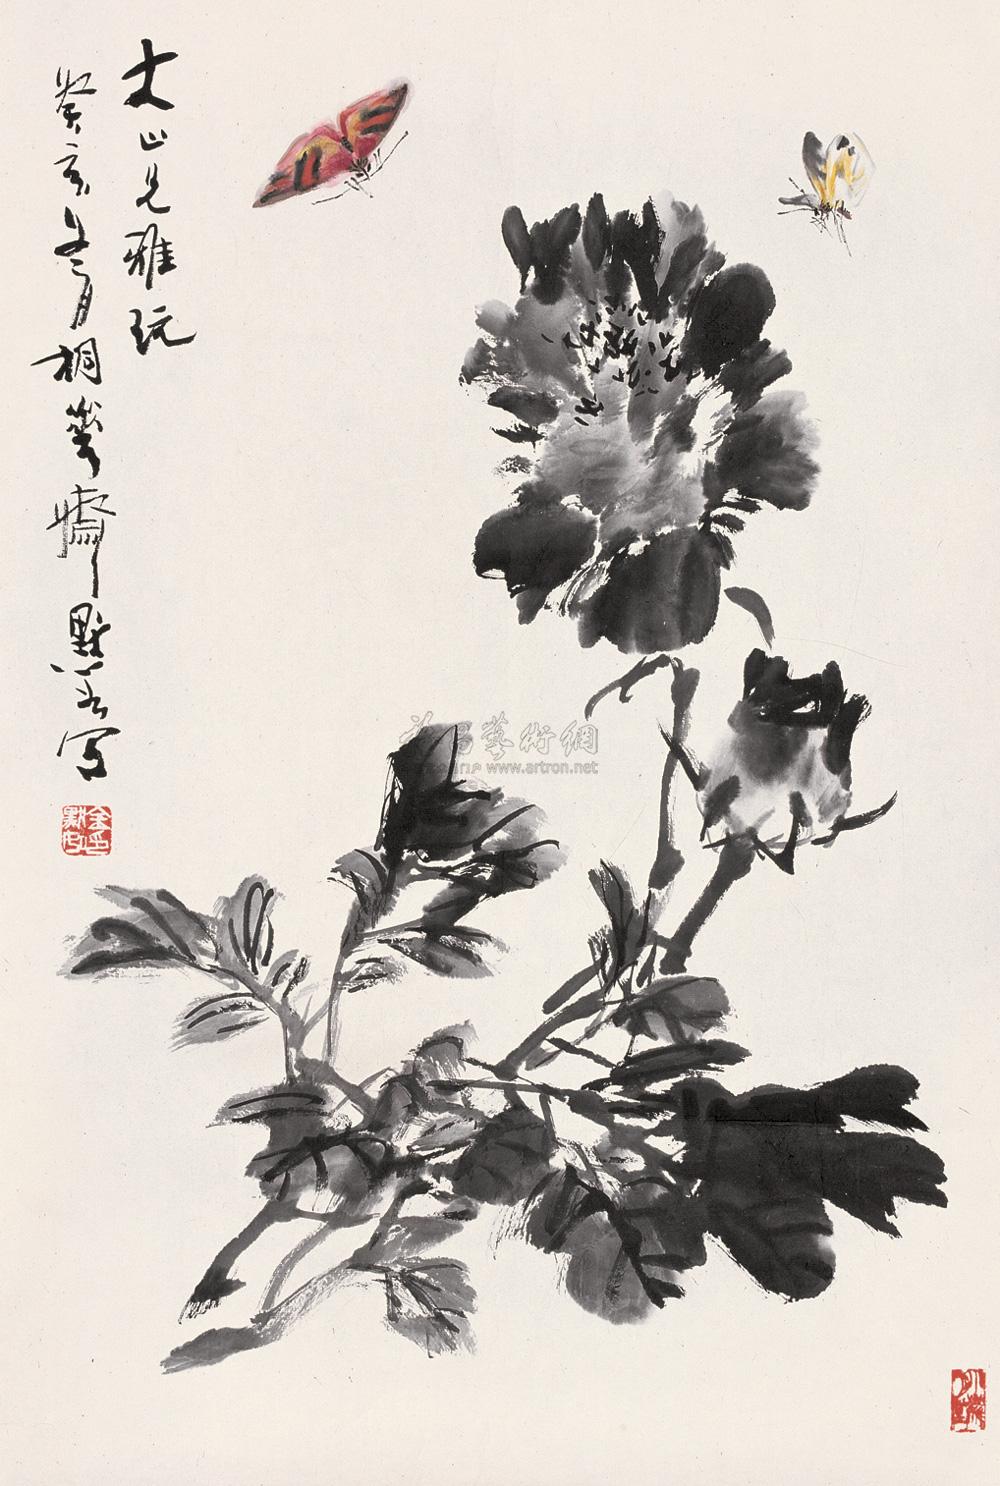 大山兄雅玩
癸亥冬月桐華齋默如写
金印默如
雅昌藝術網
www.artron.net